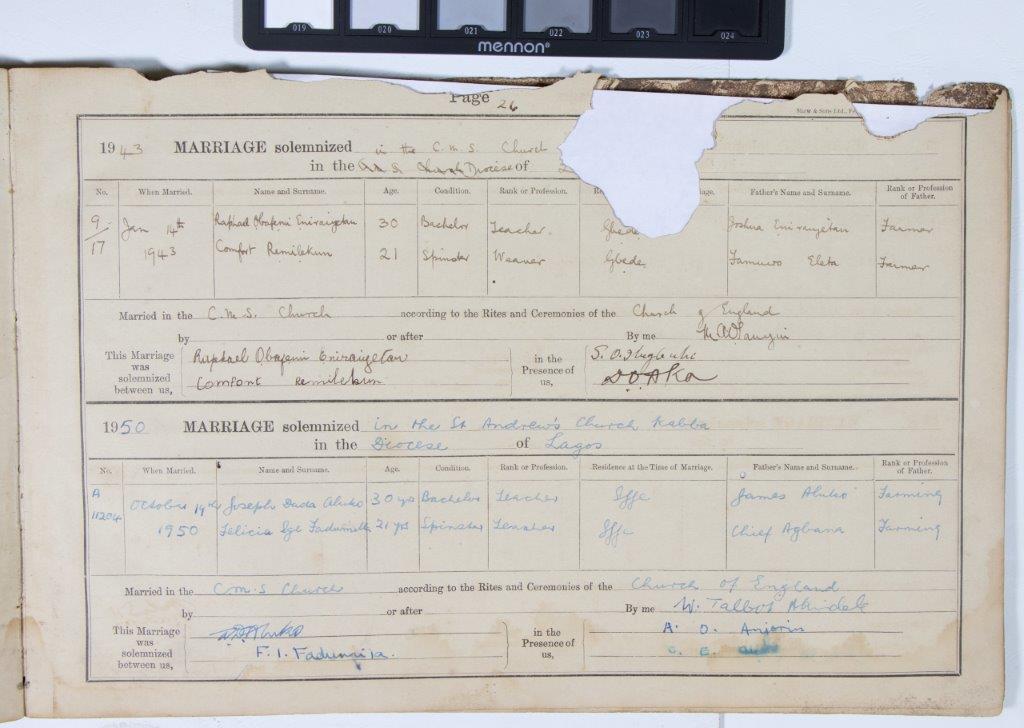 019 020 021 022 023 024
mennon®
Page 26
1943 MARRIAGE solemnized in the C.M.S. Church
in the Church Diocese of
No. When Married. Name and Surname. Age. Condition. Rank or Profession. Father's Name and Surname. Rank or Profession of Father.
9 Jan 14th Raphael Obafemi Eniraiyetan 30 Bachelor Teacher. Gbede Joshua Eniraiyetan Farmer
17 1943 Comfort Remilekun 21 Spinster Weaver Gbede Famuwo Eleta Farmer
Married in the C.M.S. Church according to the Rites and Ceremonies of the Church of England
by or after By me
This Marriage was solemnized between us, Raphael Obafemi Eniraiyetan in the Presence of us,
Comfort Remilekun D. O. Aka
1950 MARRIAGE solemnized in the St Andrew's Church Kabba
in the Diocese of Lagos
No. When Married. Name and Surname. Age. Condition. Rank or Profession. Residence at the Time of Marriage. Father's Name and Surname. Rank or Profession of Father.
A 11204 October 19th Joseph Dada Aluko 30 yrs Bachelor Teacher Iffe James Aluko Farming
1950 Felicia Ige Fadumila 21 yrs Spinster Teacher Iffe Chief Agbana Farming
Married in the C.M.S Church according to the Rites and Ceremonies of the Church of England
by or after By me W. Talbot Akindele
This Marriage was solemnized between us, in the Presence of us, A. O. Anjorin
F. I. Fadumila. C. E.